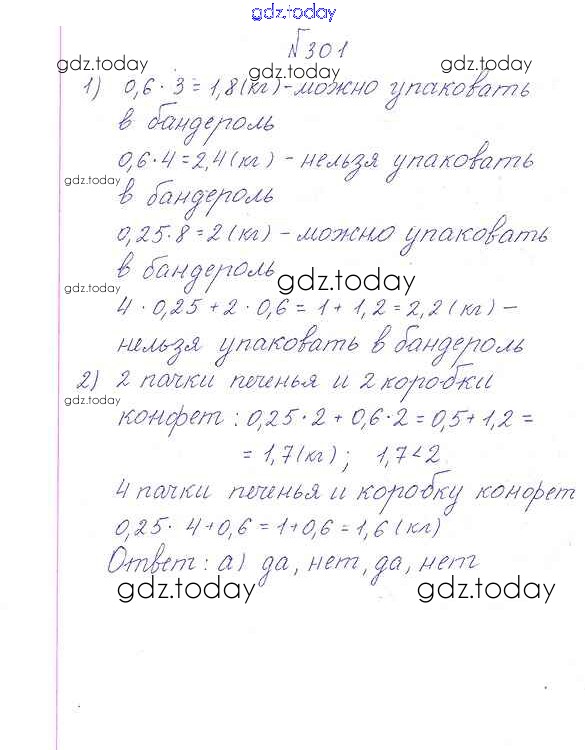 gdz.today
№301
gdz.today gdz.today gdz.today
1) 0,6 · 3 = 1,8 (кг) - можно упаковать
в бандероль
0,6 · 4 = 2,4 (кг) - нельзя упаковать
gdz.today
в бандероль
0,25 · 8 = 2 (кг) - можно упаковать
в бандероль
gdz.today
gdz.today
4 · 0,25 + 2 · 0,6 = 1 + 1,2 = 2,2 (кг) -
нельзя упаковать в бандероль
2) 2 пачки печенья и 2 коробки
gdz.today
конфет: 0,25 · 2 + 0,6 · 2 = 0,5 + 1,2 =
= 1,7 (кг); 1,7 < 2
4 пачки печенья и коробку конфет
0,25 · 4 + 0,6 = 1 + 0,6 = 1,6 (кг)
Ответ: а) да, нет, да, нет
gdz.today gdz.today